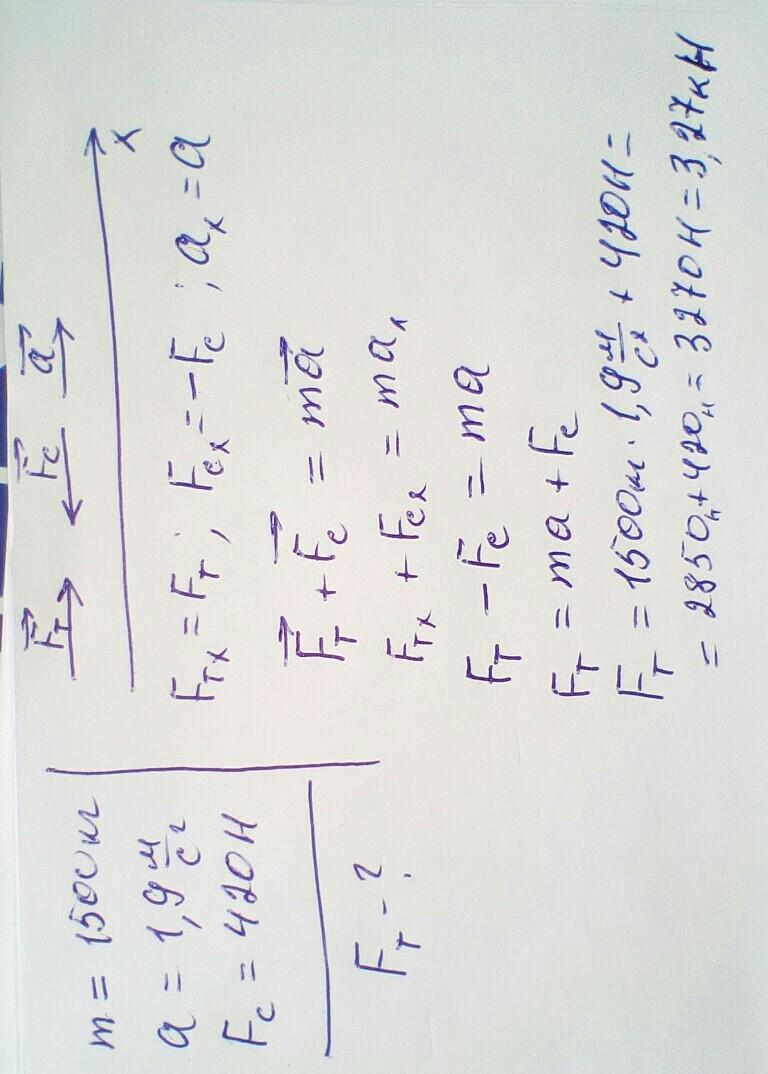 m = 1500кг
a = 1,9 м/с²
Fс = 420Н
Fт - ?
F⃗т F⃗с a⃗
x
Fтx = Fт ; Fсx = -Fс ; aₓ = a
F⃗т + F⃗с = ma⃗
Fтx + Fсx = maₓ
Fт - Fс = ma
Fт = ma + Fс
Fт = 1500кг · 1,9 м/с² + 420Н =
= 2850н + 420н = 3270Н = 3,27кН